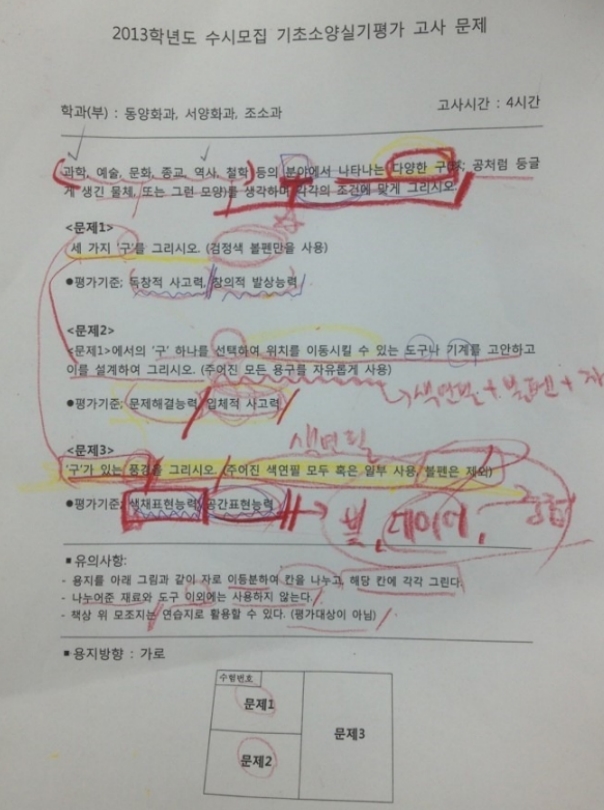 2013학년도 수시모집 기초소양실기평가 고사 문제
학과(부) : 동양화과, 서양화과, 조소과
고사시간 : 4시간
과학, 예술, 문화, 종교, 역사, 철학 등의 분야에서 나타나는 다양한 구(球; 공처럼 둥글
게 생긴 물체, 또는 그런 모양)를 생각하며 각각의 조건에 맞게 그리시오.
<문제1>
세 가지 '구'를 그리시오. (검정색 볼펜만을 사용)
●평가기준; 독창적 사고력, 창의적 발상능력
<문제2>
<문제1>에서의 '구' 하나를 선택하여 위치를 이동시킬 수 있는 도구나 기계를 고안하고
이를 설계하여 그리시오. (주어진 모든 용구를 자유롭게 사용)
→색연필+볼펜+자
●평가기준; 문제해결능력, 입체적 사고력
색연필
<문제3>
'구'가 있는 풍경을 그리시오. (주어진 색연필 모두 혹은 일부 사용, 볼펜은 제외)
●평가기준; 색채표현능력, 공간표현능력
→ 빛,
■유의사항:
- 용지를 아래 그림과 같이 자로 이등분하여 칸을 나누고, 해당 칸에 각각 그린다.
- 나누어준 재료와 도구 이외에는 사용하지 않는다.
- 책상 위 모조지는 연습지로 활용할 수 있다. (평가대상이 아님)
■용지방향 : 가로
수험번호
문제1
문제2
문제3